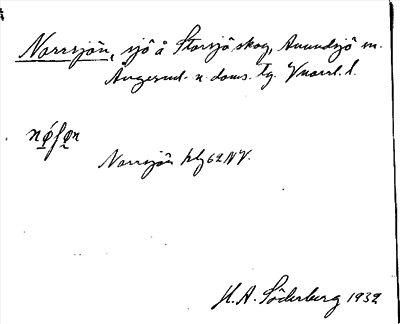 Norrsjön, sjö å Storsjö skog, Anundsjö sn.
Ångerml. n. doms. tg. Vnorrl. l.
Norrsjön hfg 62 NV.
H. A. Söderberg 1932